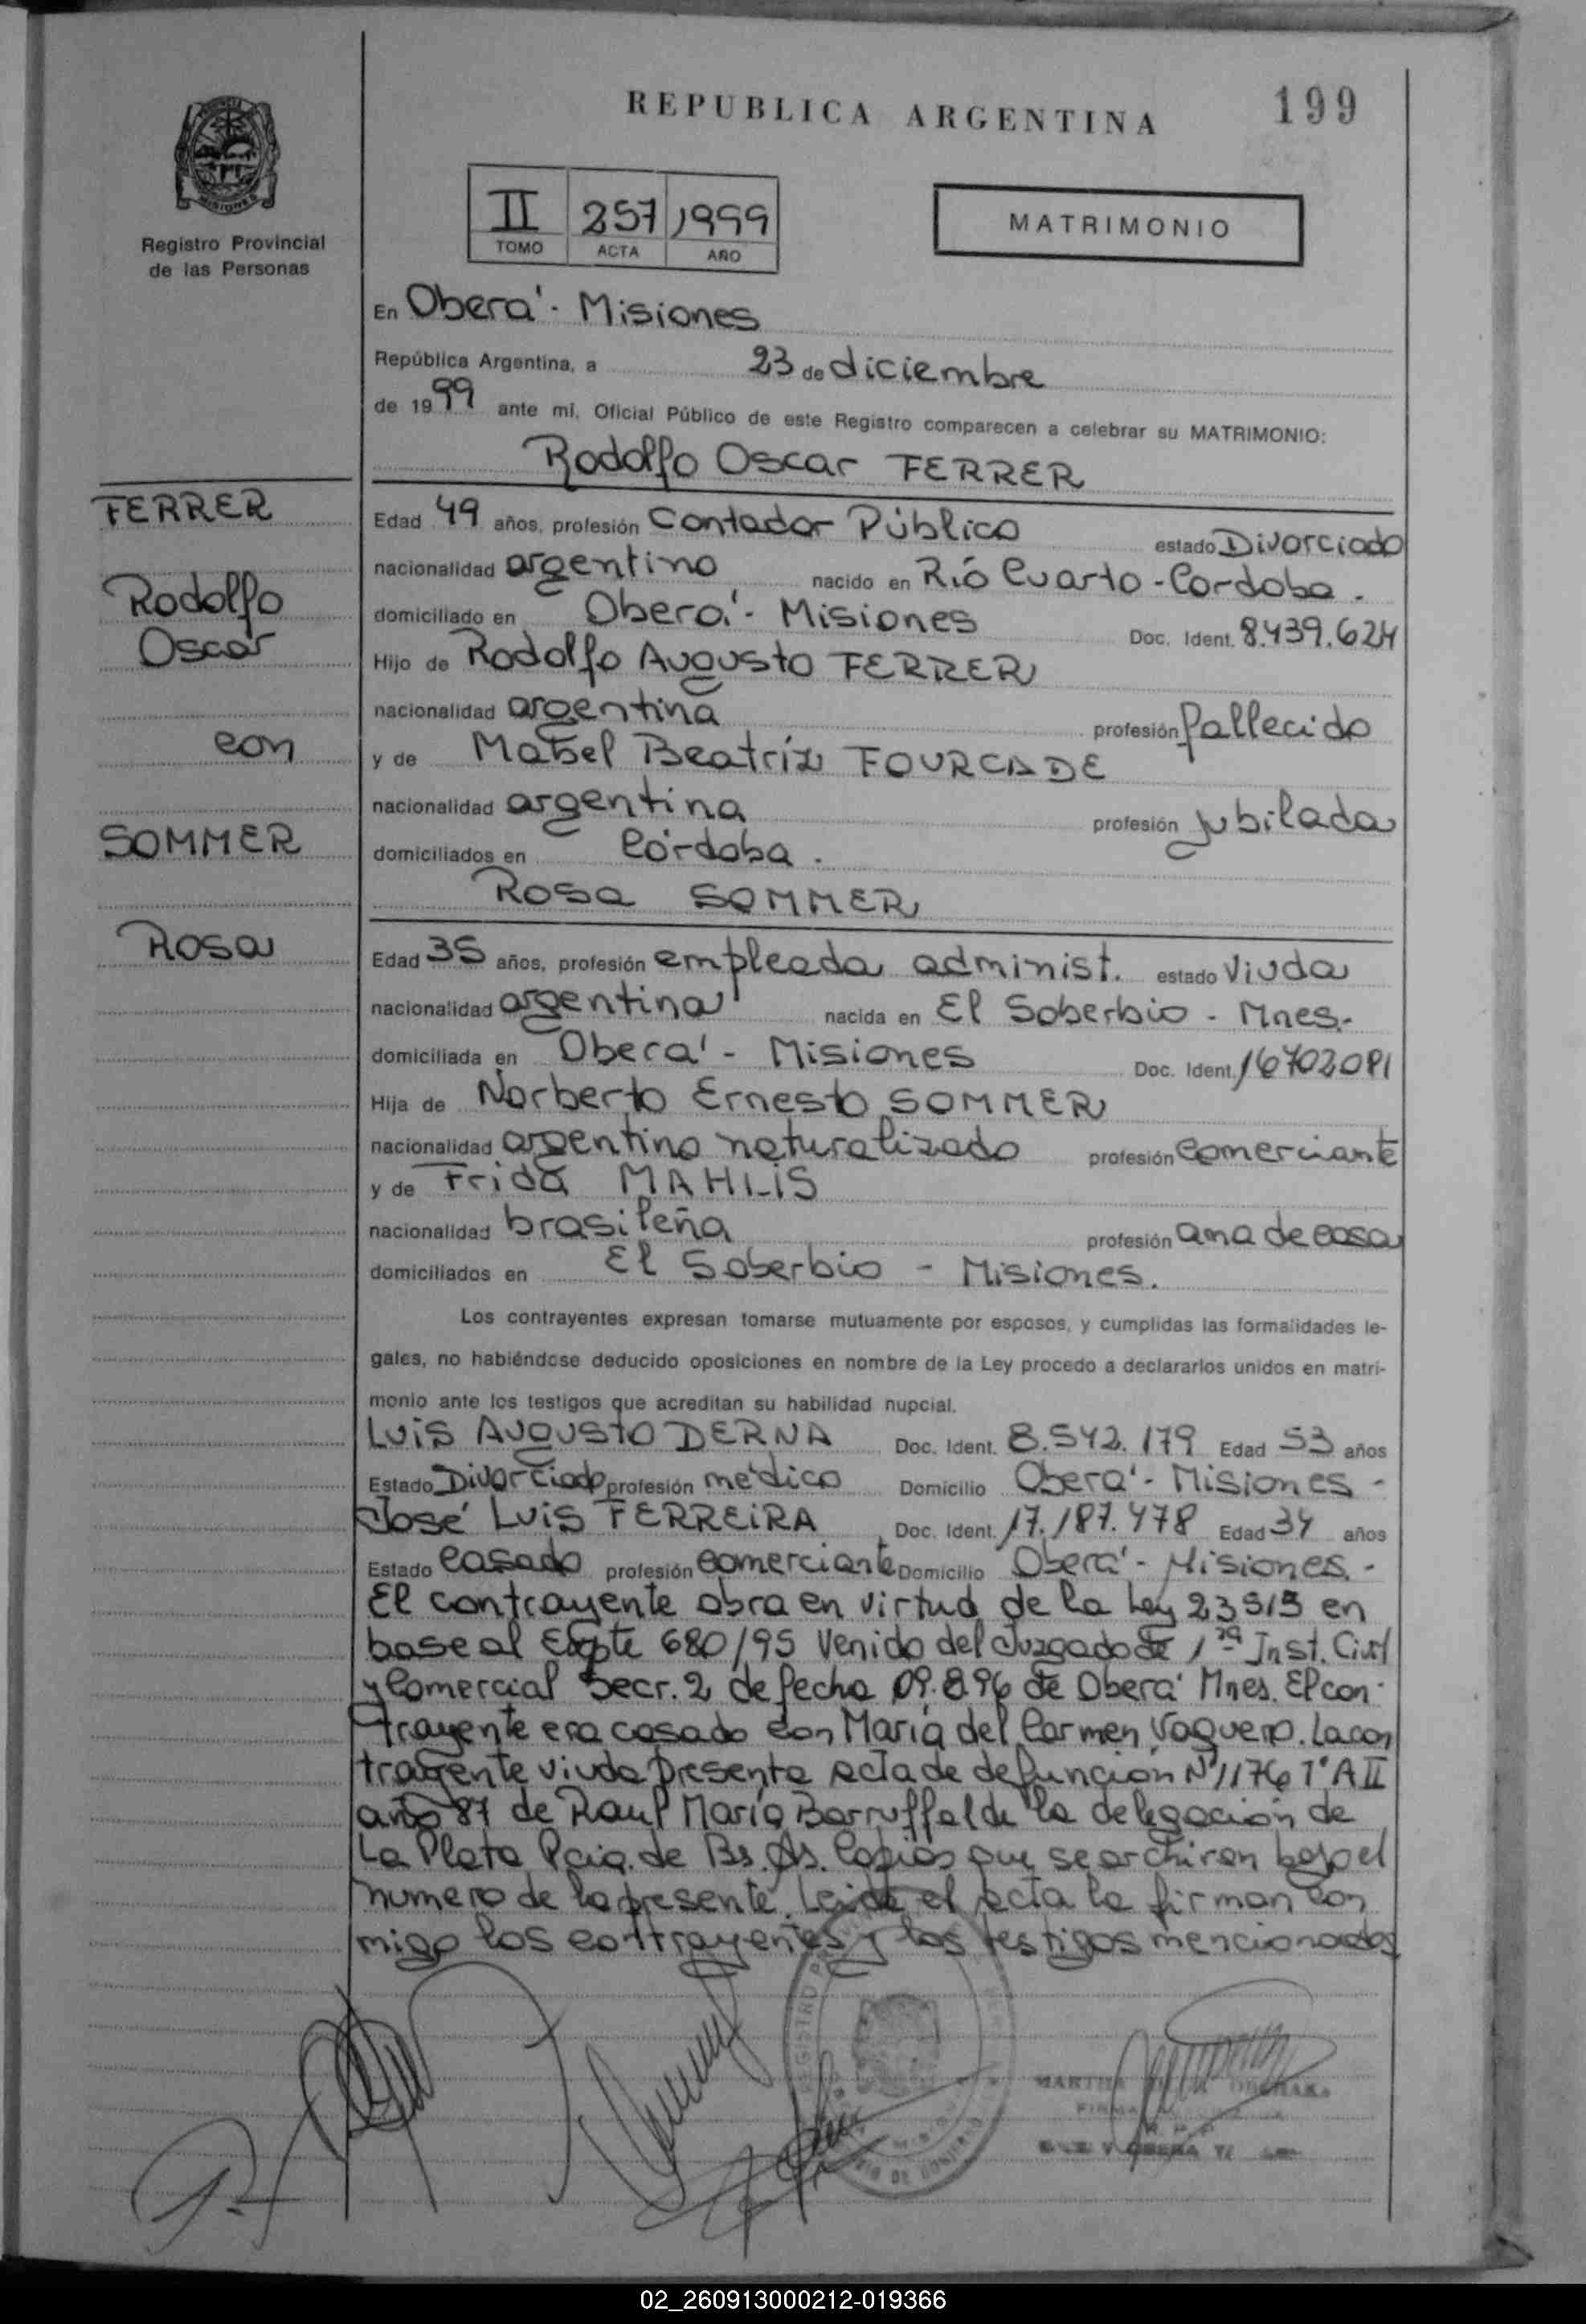 REPUBLICA ARGENTINA
199
MISIONES
Registro Provincial
de las Personas
II 257 1999
TOMO ACTA AÑO
MATRIMONIO
En Oberá - Misiones
República Argentina, a 23 de diciembre
de 1999 ante mí, Oficial Público de este Registro comparecen a celebrar su MATRIMONIO:
Rodolfo Oscar FERRER
FERRER
Rodolfo
Oscar
con
SOMMER
Rosa
Edad 49 años, profesión Contador Público estado Divorciado
nacionalidad argentino nacido en Río Cuarto - Cordoba.
domiciliado en Oberá - Misiones Doc. Ident. 8.439.624
Hijo de Rodolfo Augusto FERRER
nacionalidad argentina profesión fallecido
y de Mabel Beatríz FOURCADE
nacionalidad argentina profesión jubilada
domiciliados en Córdoba.
Rosa SOMMER
Edad 35 años, profesión empleada administ. estado Viuda
nacionalidad argentina nacida en El Soberbio - Mnes.-
domiciliada en Oberá - Misiones Doc. Ident. 16702081
Hija de Norberto Ernesto SOMMER
nacionalidad argentino naturalizado profesión comerciante
y de Frida MAHLIS
nacionalidad brasileña profesión ama de casa
domiciliados en El Soberbio - Misiones.
Los contrayentes expresan tomarse mutuamente por esposos, y cumplidas las formalidades le-
gales, no habiéndose deducido oposiciones en nombre de la Ley procedo a declararlos unidos en matri-
monio ante los testigos que acreditan su habilidad nupcial.
LUIS AUGUSTO DERNA Doc. Ident. 8.542.179 Edad 53 años
Estado Divorciado profesión médico Domicilio Oberá - Misiones -
José LUIS FERREIRA Doc. Ident. 17.187.478 Edad 34 años
Estado Casado profesión comerciante Domicilio Oberá - Misiones. -
El contrayente obra en virtud de la Ley 23515 en
base al Expte 680/95 Venido del Juzgado de 1ra Inst. Civil
y Comercial Secr. 2 de fecha 09.8.96 de Oberá Mnes. El con-
trayente era casado con María del Carmen Vaquero. La con
trayente viuda presenta acta de defunción Nº 1176 Tº A II
año 87 de Raul María Barruffaldi de la delegación de
La Plata Pcia. de Bs. As. Copias que se archivan bajo el
numero de la presente. Leida el acta la firman con
migo los contrayentes y los testigos mencionados
02_260913000212-019366